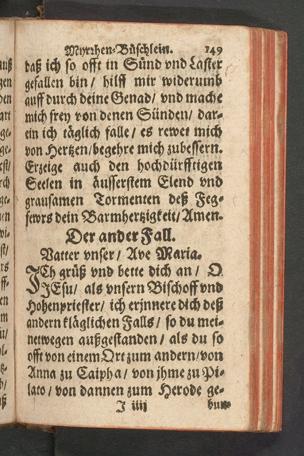 Myrrhen-Büschlein. 149
daß ich so offt in Sünd vnd Laster
gefallen bin / hilff mir widerumb
auff durch deine Genad / vnd mache
mich frey von denen Sünden / dar-
ein ich täglich falle / es rewet mich
von Hertzen / begehre mich zubessern.
Erzeige auch den hochdürfftigen
Seelen in äusserstem Elend vnd
grausamen Tormenten deß Feg-
fewrs dein Barmhertzigkeit / Amen.
Der ander Fall.
Vatter vnser / Ave Maria.
JCh grüß vnd bette dich an / O
JEsu / als vnsern Bischoff vnd
Hohenpriester / ich erjnnere dich deß
andern kläglichen Falls / so du mei-
netwegen außgestanden / als du so
offt von einem Ort zum andern / von
Anna zu Caipha / von jhme zu Pi-
lato / von dannen zum Herode ge-
J iiij bun-